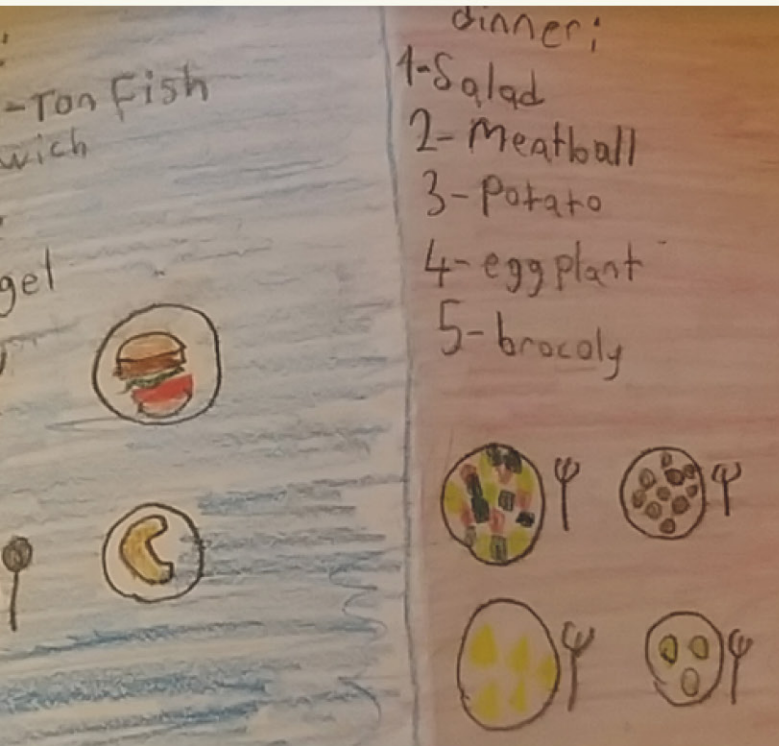 -Ton Fish
wich
gel
dinner:
1-Salad
2-Meatball
3-Potato
4-eggplant
5-brocoly